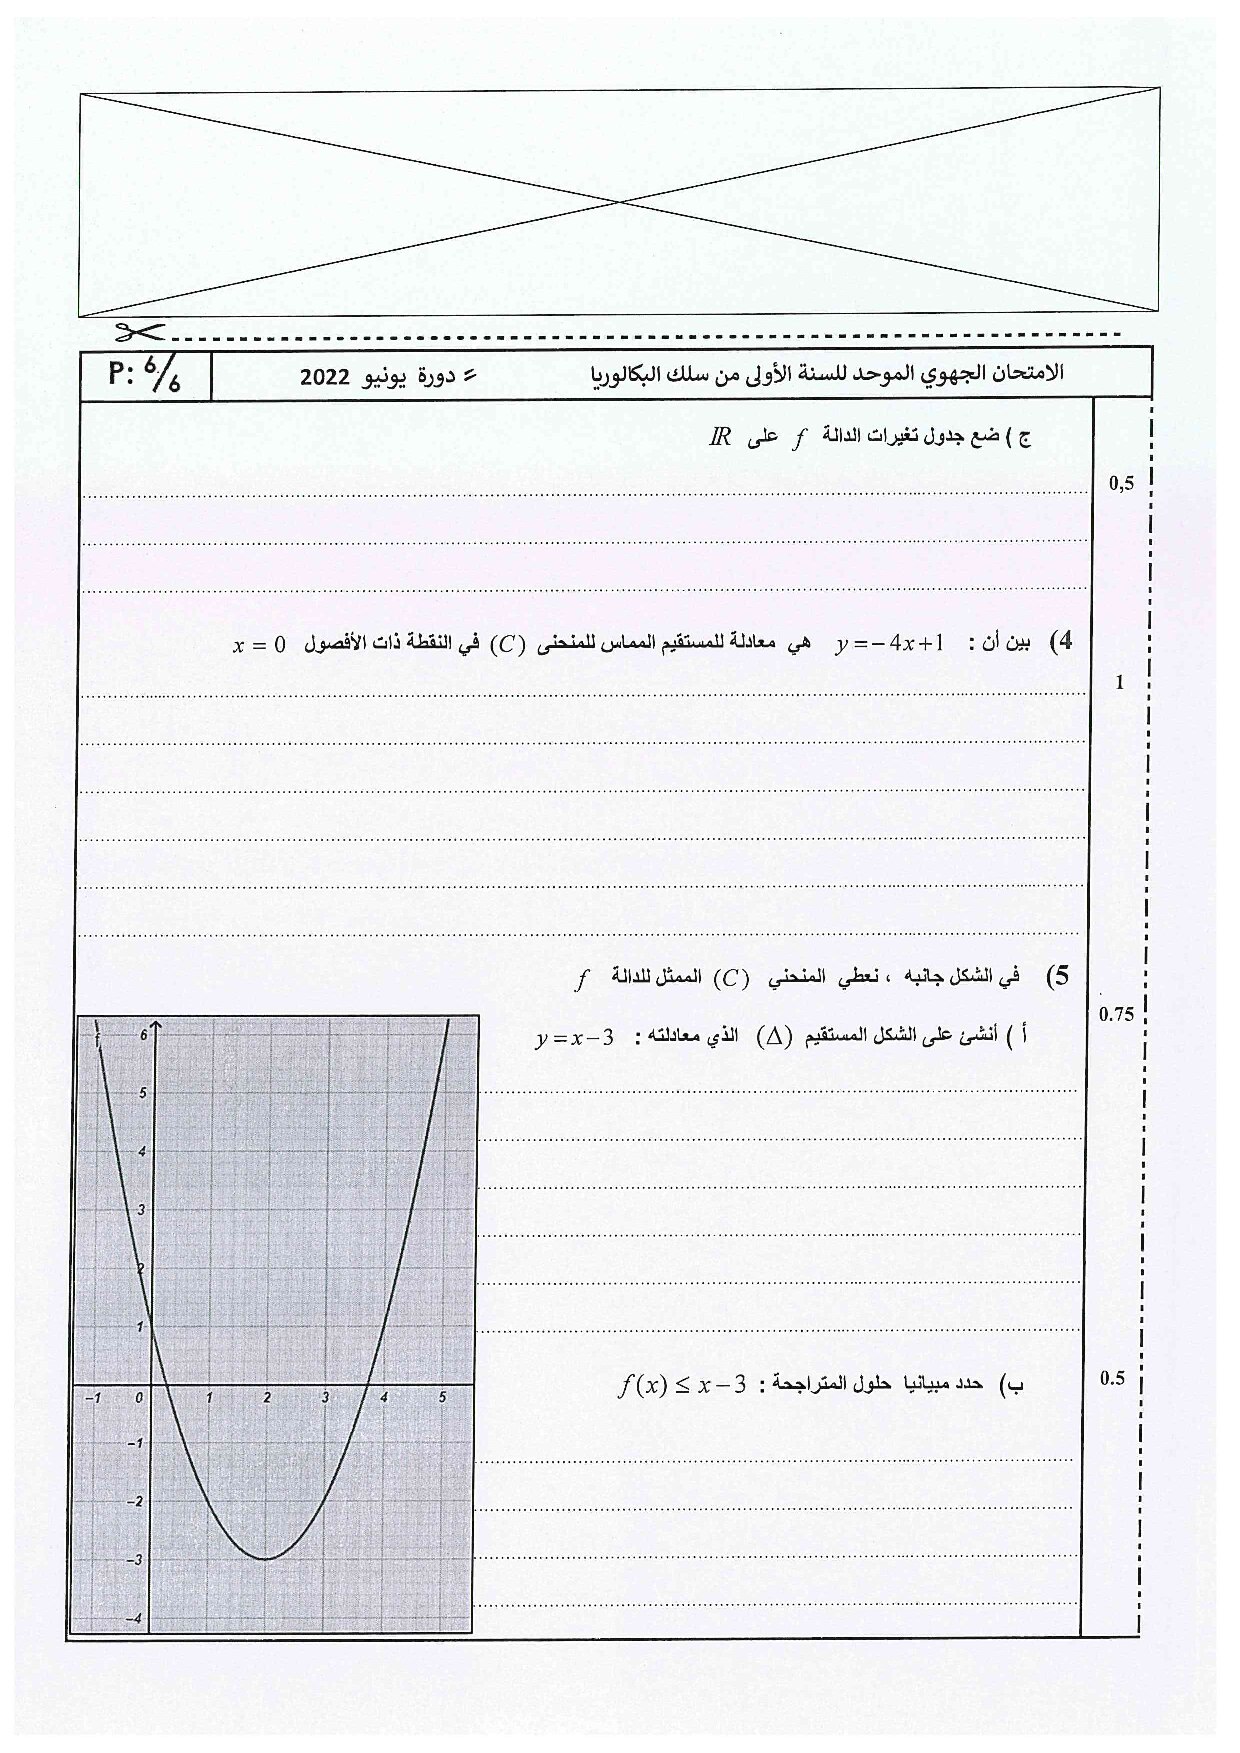 الامتحان الجهوي الموحد للسنة الأولى من سلك البكالوريا - دورة يونيو 2022 P: 6/6
ج ) ضع جدول تغيرات الدالة f على IR
0,5
4) بين أن : y = – 4x + 1 هي معادلة للمستقيم المماس للمنحنى (C) في النقطة ذات الأفصول x = 0
1
5) في الشكل جانبه ، نعطي المنحني (C) الممثل للدالة f
0.75
أ ) أنشئ على الشكل المستقيم (Δ) الذي معادلته : y = x – 3
ب) حدد مبيانيا حلول المتراجحة : f(x) ≤ x – 3
0.5
6
5
4
3
2
1
–1 0 1 2 3 4 5
–1
–2
–3
–4